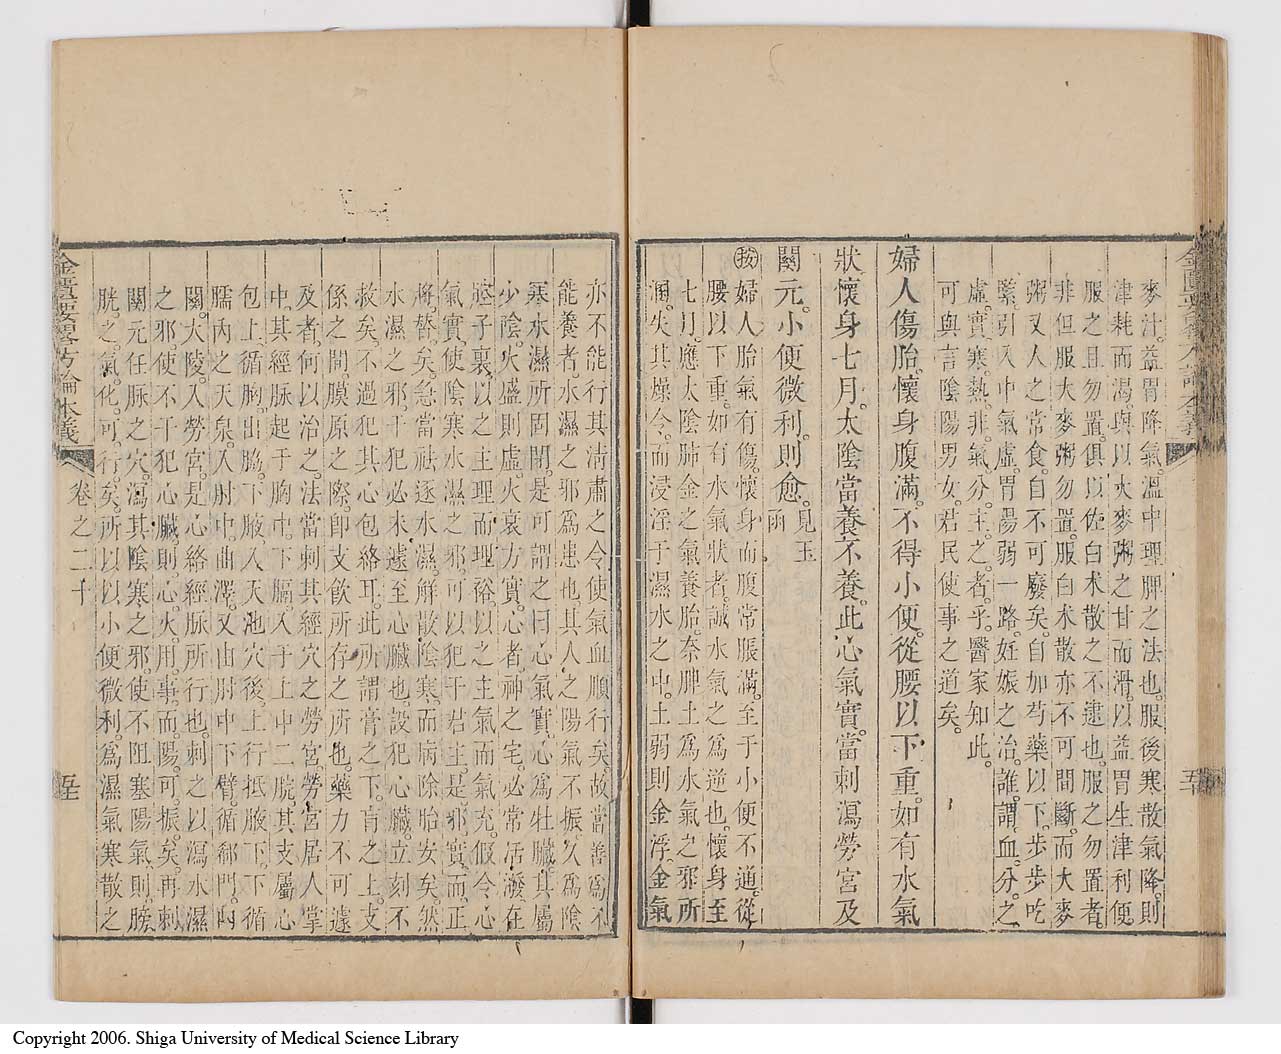 麥汁。益胃降氣。溫中理脾之法也。服後寒散氣降。則
津耗而渴。與以大麥粥之甘而滑。以益胃生津利便
服之且勿置。俱以佐白术散之不逮也。服之勿置者。
非但服大麥粥勿置。服白术散亦不可間斷。而大麥
粥又人之常食。自不可廢矣。自加芍藥以下。步步吃
緊。引入中氣虛。胃陽弱一路。妊娠之治。誰謂血分之
虛。實寒熱。非氣分主之者乎。醫家知此。
可與言陰陽男女。君民使事之道矣。
婦人傷胎。懷身腹滿。不得小便。從腰以下重。如有水氣
狀。懷身七月。太陰當養不養。此心氣實。當刺瀉勞宮及
關元。小便微利。則愈。見玉函
按婦人胎氣有傷。懷身而腹常脹滿。至于小便不通。從
腰以下重。如有水氣狀者。誠水氣之爲逆也。懷身至
七月。應太陰肺金之氣養胎。奈脾土爲水氣之邪所
涸。失其燥令。而浸淫于濕水之中。土弱則金浮。金氣
亦不能行其淸肅之令。使氣血順行矣。故當養爲不
能養者。水濕之邪爲患也。其人之陽氣不振。久爲陰
寒水濕所固閉。是可謂之曰心氣實。心爲牡臟。其屬
少陰。火盛則虛。火衰方實。心者神之宅。必常活潑在
腔子裏。以之主理而理裕。以之主氣而氣充。假令心
氣實。使陰寒水濕之邪。可以犯干君主。是邪實。而正
將替矣。急當祛逐水濕。解散陰寒。而病除胎安矣。然
水濕之邪。干犯必未遽至心臟也。設犯心臟。立刻不
救矣。不過犯其心包絡耳。此所謂膏之下。肓之上。支
係之間。膜原之際。卽支飮所存之所也。藥力不可遽
及者。何以治之。法當刺其經穴之勞宮。勞宮居人掌
中。其經脉起于胸中。下膈。入于上中二脘。其支屬心
包上循胸。出脇。下腋入天池穴後。上行抵腋下。下循
臑內之天泉。入肘中。曲澤。又由肘中下臂。循郄門。內
關。大陵。入勞宮。是心絡經脈所行也。刺之以瀉水濕
之邪。使不干犯心臟。則心火。用事。而陽可振矣。再刺
關元任脉之穴。瀉其陰寒之邪。使不阻塞陽氣。則膀
胱。之氣化。可行矣。所以以小便微利。爲濕氣寒散之
金匱要略方論本義
卷之二十
Copyright 2006. Shiga University of Medical Science Library